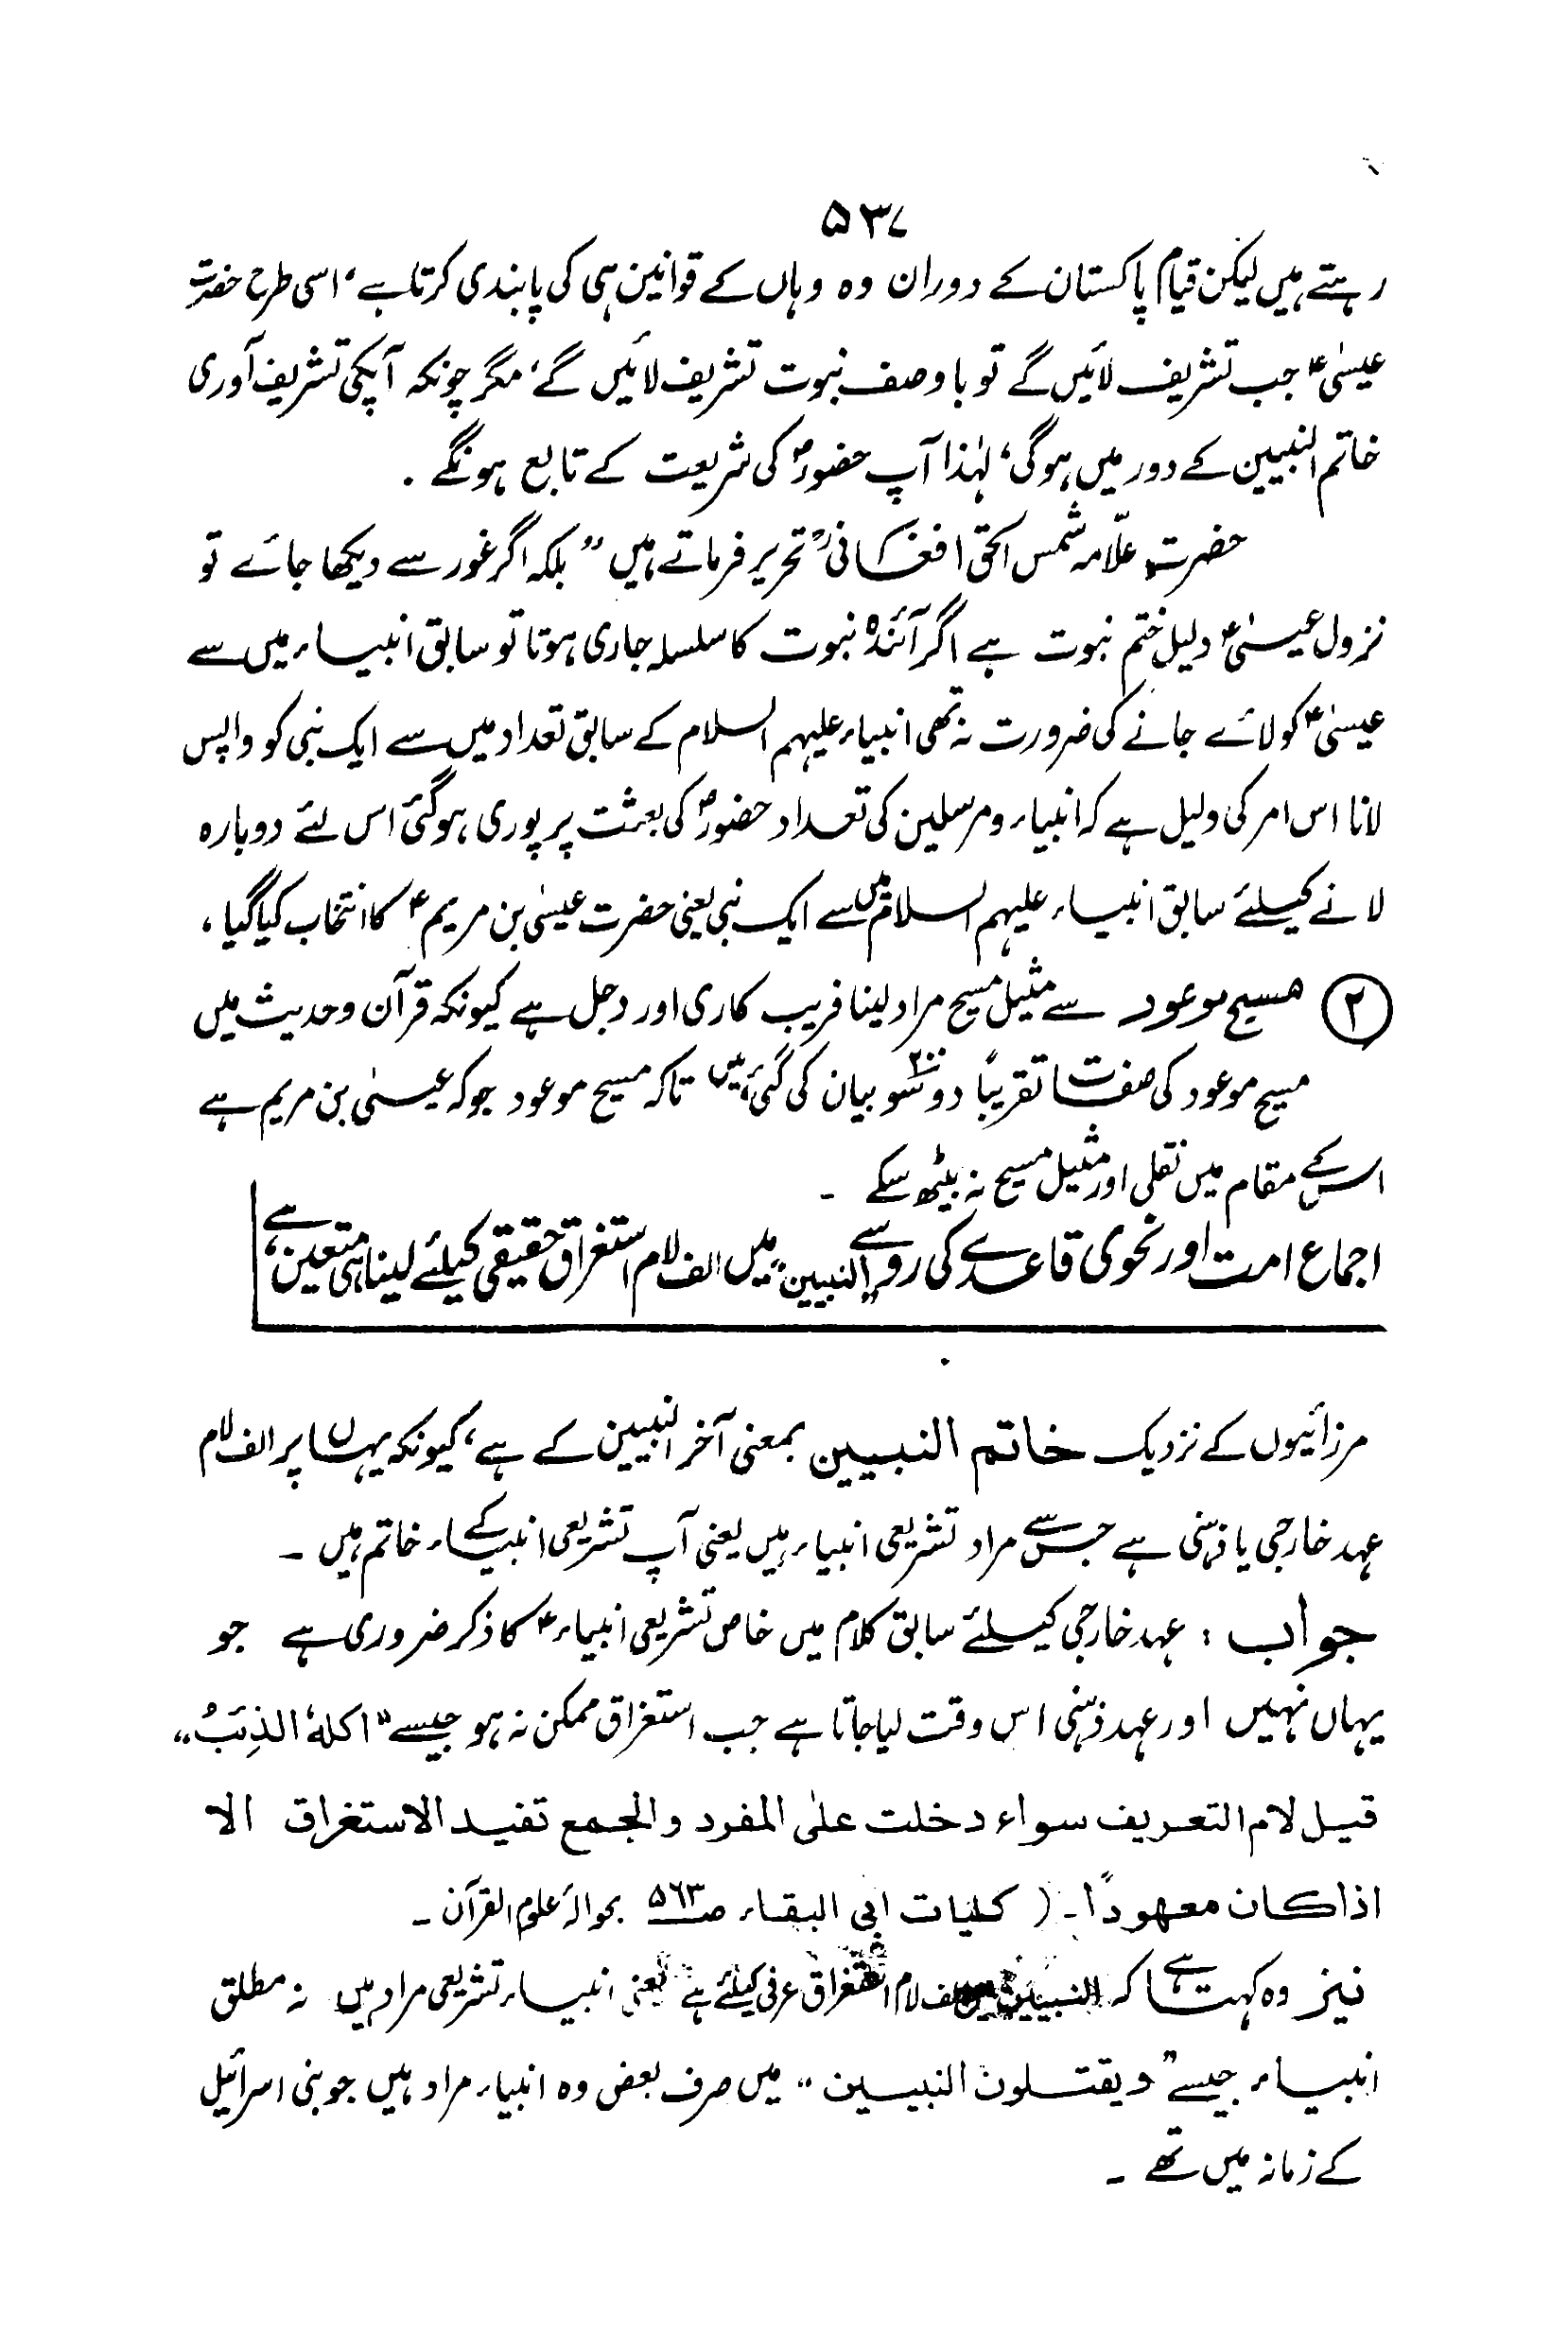 ۵۳۷
رہتے ہیں لیکن قیام پاکستان کے دوران وہ وہاں کے قوانین ہی کی پابندی کرتا ہے، اسی طرح حضرت
عیسٰیؑ جب تشریف لائیں گے تو با وصف نبوت تشریف لائیں گے، مگر چونکہ آپکی تشریف آوری
خاتم النبیین کے دور میں ہوگی، لہٰذا آپ حضورؐ کی شریعت کے تابع ہونگے ۔
حضرت علّامہ شمس الحق افغانیؒ تحریر فرماتے ہیں ” بلکہ اگر غور سے دیکھا جائے تو
نزول عیسٰیؑ دلیل ختم نبوت ہے اگر آئندہ نبوت کا سلسلہ جاری ہوتا تو سابق انبیاء میں سے
عیسٰیؑ کو لائے جانے کی ضرورت نہ تھی انبیاء علیہم السلام کے سابق تعداد میں سے ایک نبی کو واپس
لانا اس امر کی دلیل ہے کہ انبیاء ومرسلین کی تعداد حضورؐ کی بعثت پر پوری ہوگئی اس لئے دوبارہ
لانے کیلئے سابق انبیاء علیہم السلام میں سے ایک نبی یعنی حضرت عیسٰی بن مریمؑ کا انتخاب کیا گیا ،
۲ مسیح موعود سے مثیل مسیح مراد لینا فریب کاری اور دجل ہے کیونکہ قرآن وحدیث میں
مسیح موعود کی صفات تقریباً دو سو ۲۰۰ بیان کی گئی ہیں تاکہ مسیح موعود جو کہ عیسٰی بن مریم ہے
اس کے مقام میں نقلی اور مثیل مسیح نہ بیٹھ سکے ۔
اجماع امت اور نحوی قاعدے کی رو سے ”النبیین“ میں الف لام استغراق حقیقی کیلئے لینا ہی متعین ہے،
مرزائیوں کے نزدیک خاتم النبیین بمعنی آخر النبیین کے ہے، کیونکہ یہاں پر الف لام
عہد خارجی یا ذہنی ہے جس سے مراد تشریعی انبیاء ہیں یعنی آپ تشریعی انبیاء کے خاتم ہیں ۔
جواب : عہد خارجی کیلئے سابق کلام میں خاص تشریعی انبیاءؑ کا ذکر ضروری ہے جو
یہاں نہیں اور عہد ذہنی اس وقت لیا جاتا ہے جب استغراق ممکن نہ ہو جیسے ” اکلہٗ الذِئبُ “
قیل لام التعریف سواء دخلت علٰی المفرد والجمع تفید الاستغراق الا
اذا کان معھودًا۔ ( کلیات ابی البقاء صـ۵۶۳ بحوالۂ علوم القرآن ۔
نیز وہ کہتا ہے کہ النبیین میں الف لام استغراق عرفی کیلئے ہے یعنی انبیاء تشریعی مراد ہیں نہ مطلق
انبیاء جیسے ” ویقتلون النبیین “ میں صرف بعض وہ انبیاء مراد ہیں جو بنی اسرائیل
کے زمانہ میں تھے ۔